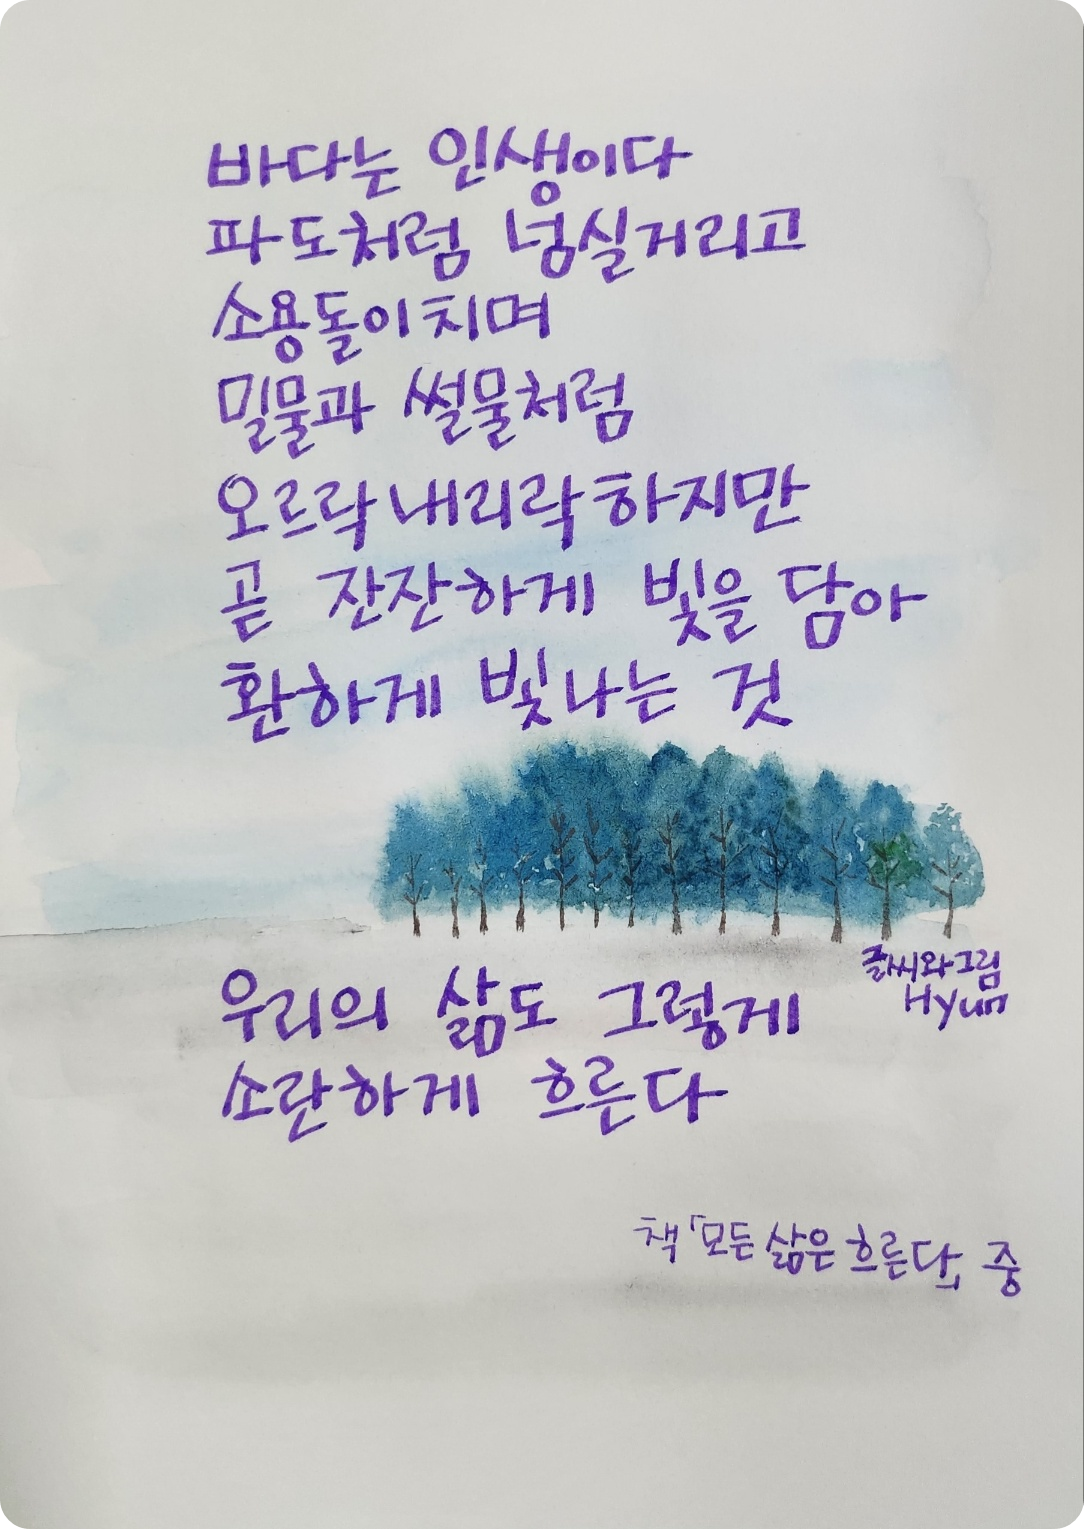 바다는 인생이다
파도처럼 넝실거리고
소용돌이치며
밀물과 썰물처럼
오르락내리락하지만
곧 잔잔하게 빛을 담아
환하게 빛나는 것
글씨와그림
Hyun
우리의 삶도 그렇게
소란하게 흐른다
책「모든 삶은 흐른다」 중